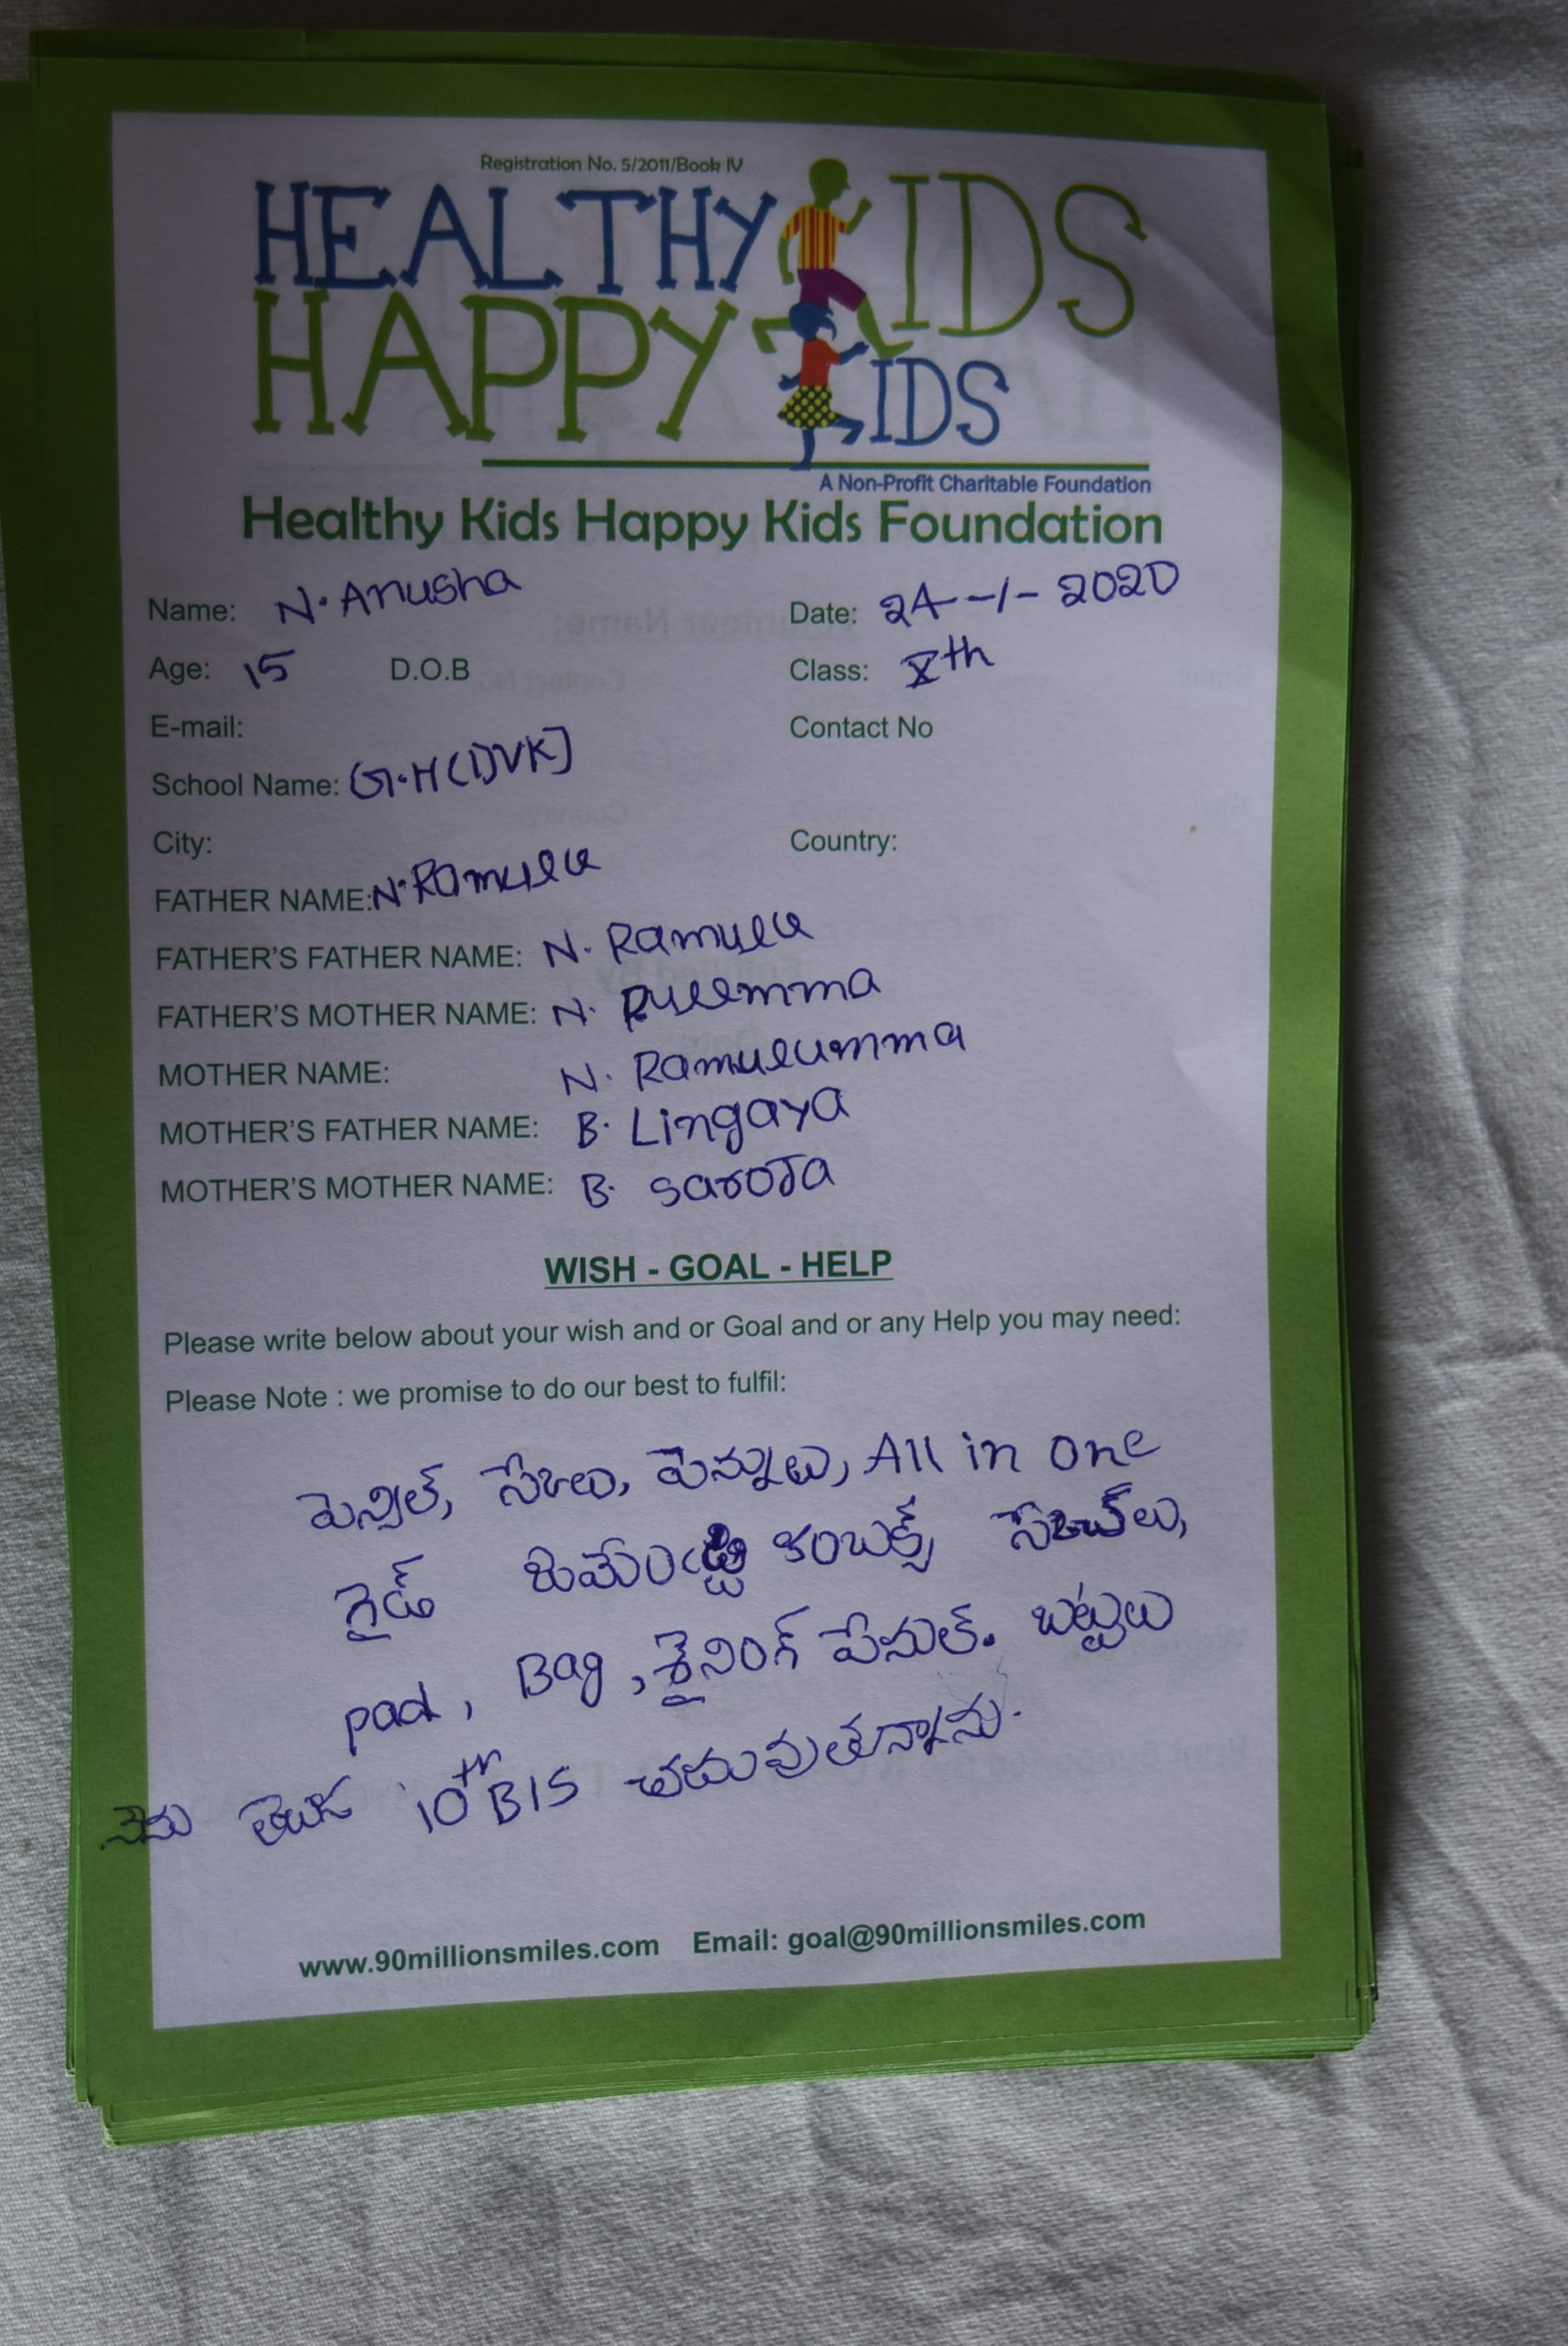 Registration No. 5/2011/Book IV
HEALTHY KIDS
HAPPY KIDS
A Non-Profit Charitable Foundation
Healthy Kids Happy Kids Foundation
Name: N. Anusha Date: 24-1-2020
Age: 15 D.O.B Class: Xth
E-mail: Contact No
School Name: G.H(DVK]
City: Country:
FATHER NAME: N. Ramulu
FATHER'S FATHER NAME: N. Ramulu
FATHER'S MOTHER NAME: N.
MOTHER NAME: N. Ramulumma
MOTHER'S FATHER NAME: B. Lingaya
MOTHER'S MOTHER NAME: B. saroJa
WISH - GOAL - HELP
Please write below about your wish and or Goal and or any Help you may need:
Please Note : we promise to do our best to fulfil:
పెన్సిల్, పెన్నులు, All in one
గైడ్
pad, Bag, షైనింగ్ బట్టలు
నేను 10th BIS చదువుతున్నాను.
www.90millionsmiles.com Email: goal@90millionsmiles.com